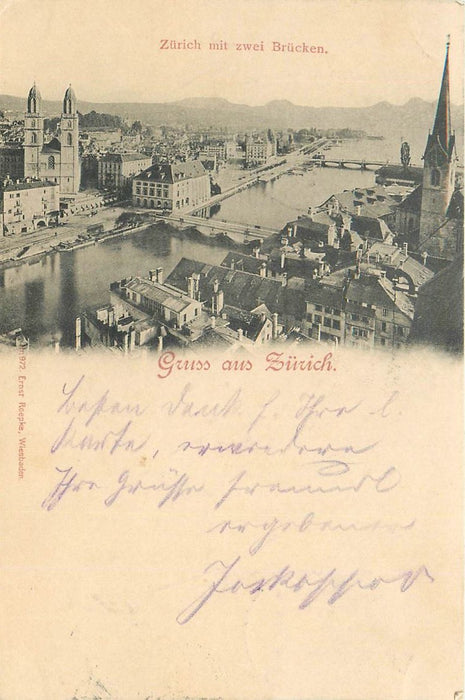 Zürich mit zwei Brücken.
Gruss aus Zürich.
Besten Dank f. Ihre l.
Karte, erwiedere
Ihre Grüsse freundl
ergebener
972. Ernst Roepke, Wiesbaden.